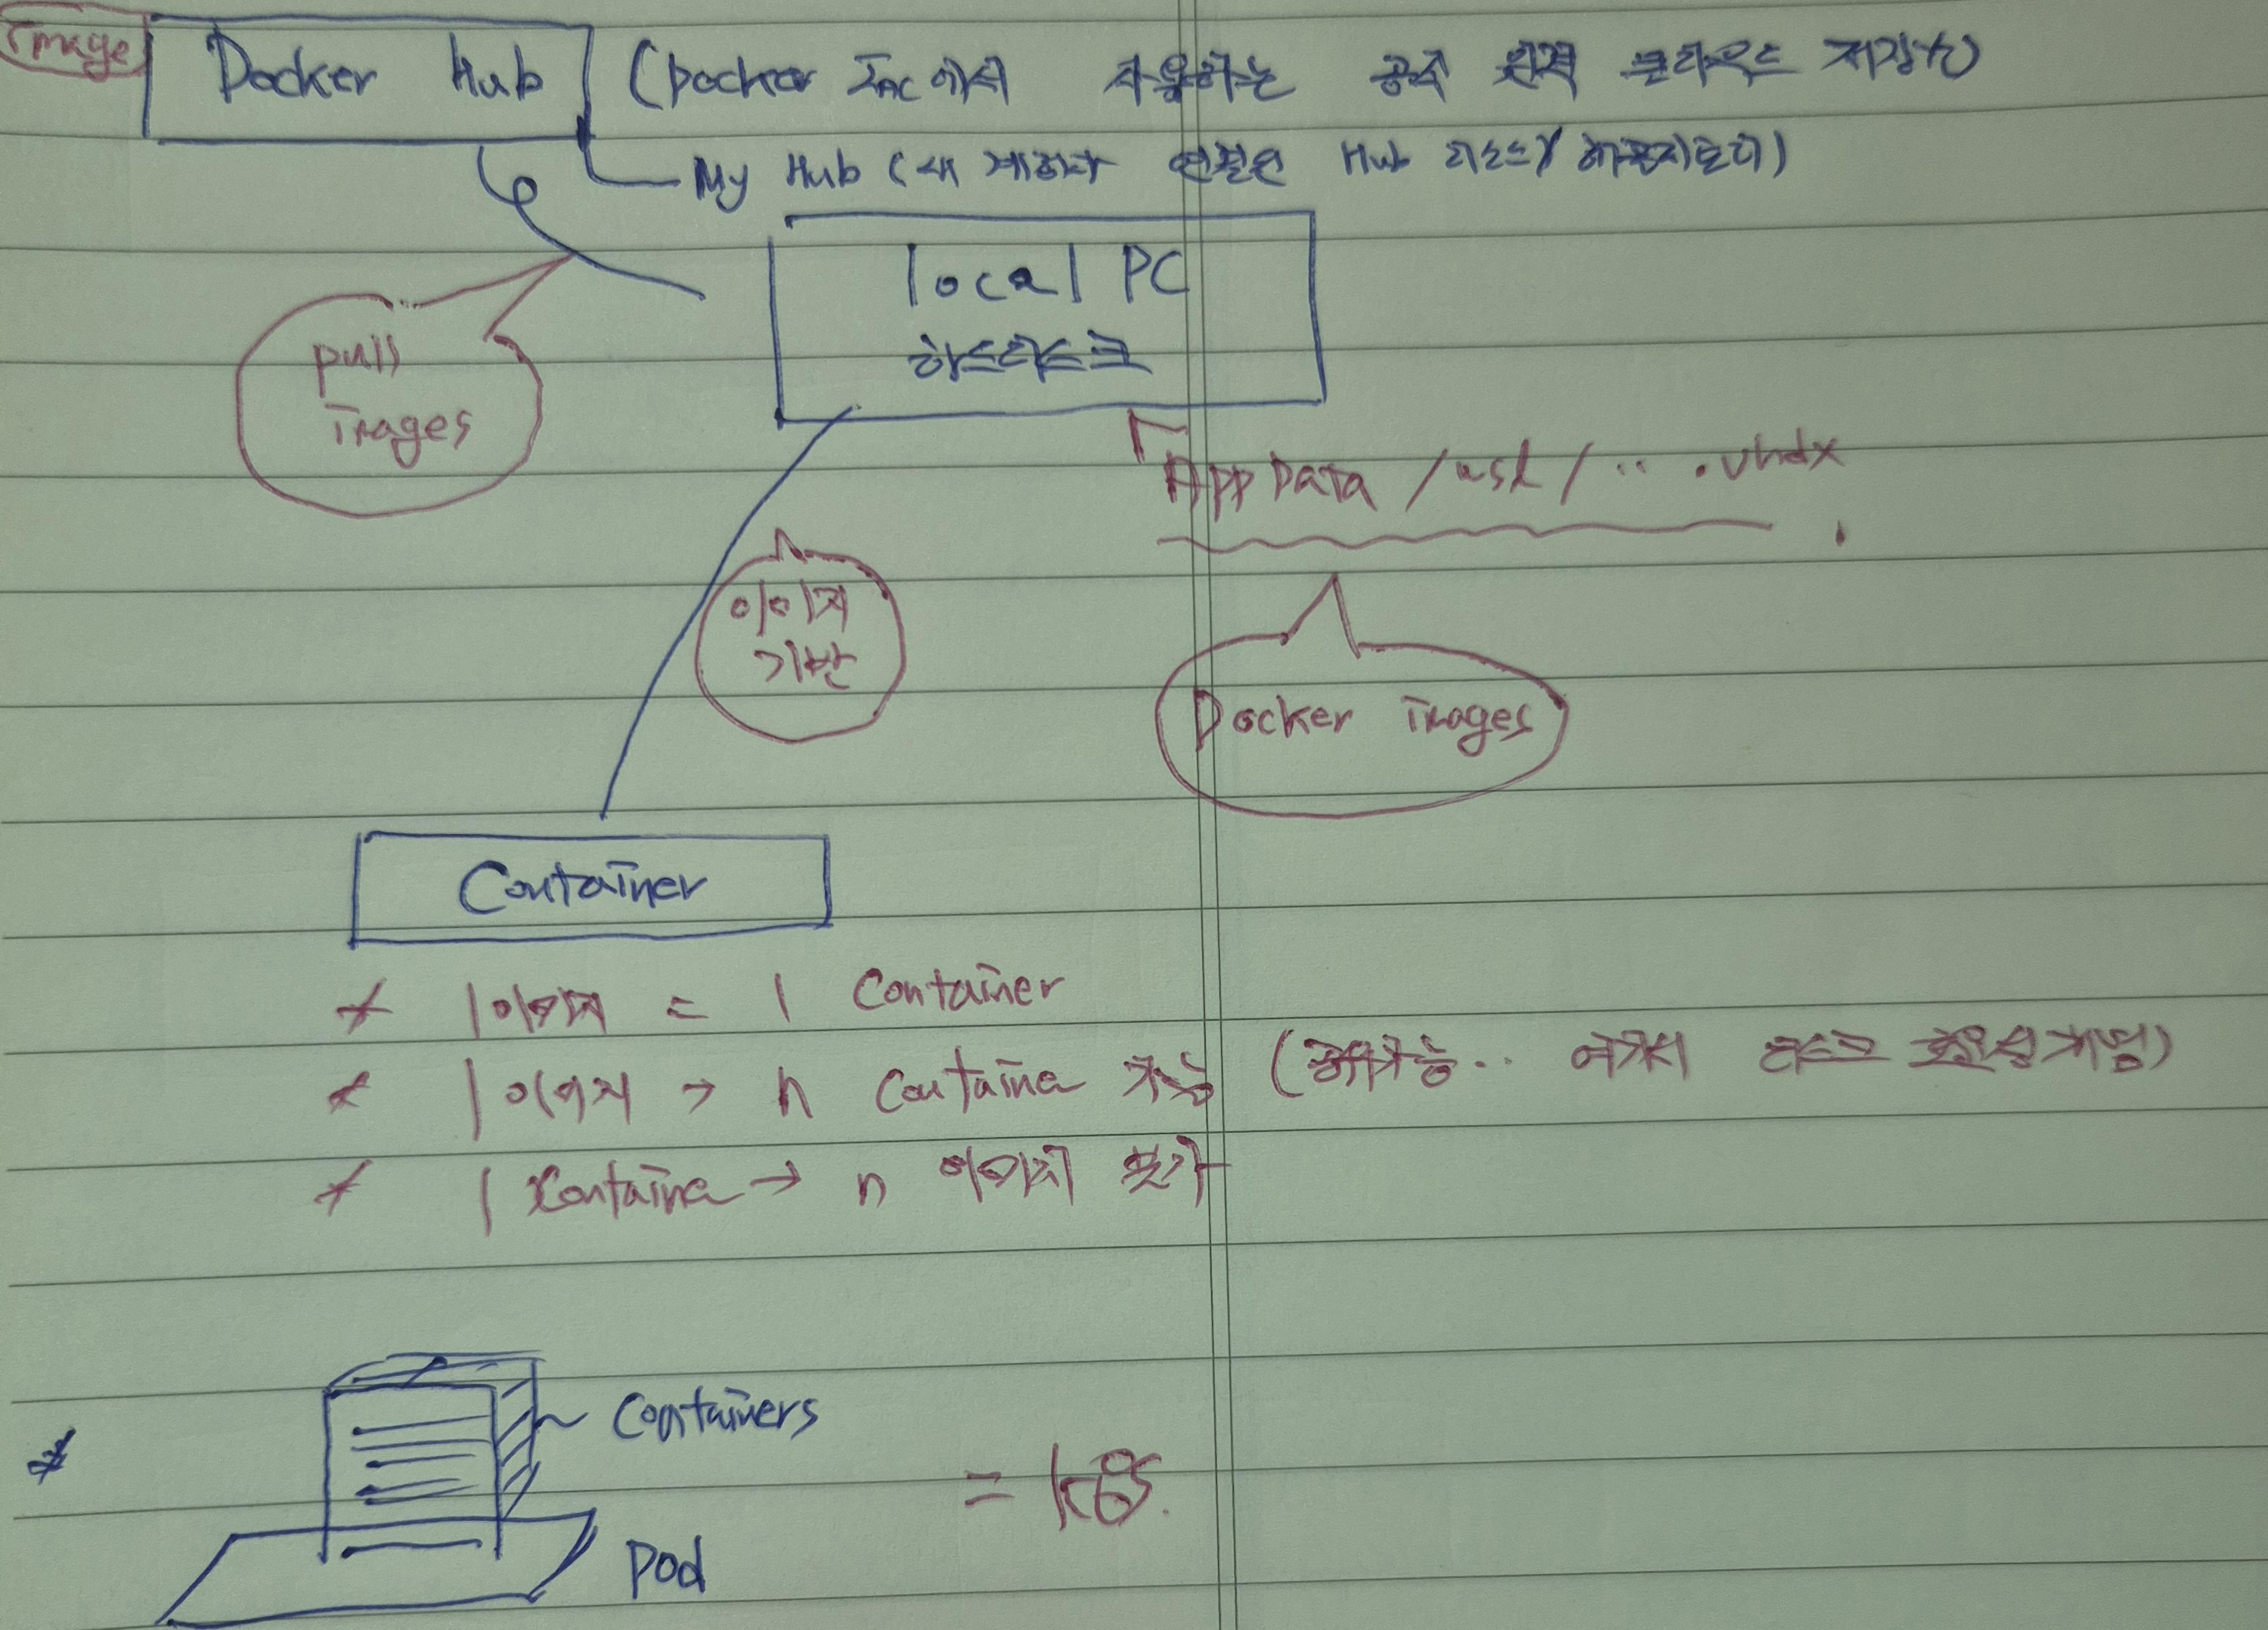 image
Docker Hub (Docker Inc에서 사용하는 공식 원격 클라우드 저장소)
My Hub (내 계정과 연결된 Hub 리소스/
local PC
하드디스크
pull
images
AppData /wsl/ ‥ .vhdx
이미지
기반
Docker images
Container
* 1 이미지 = 1 Container
* 1 이미지 → n Container 가능 (
* 1 Container → n 이미지 불가
* Containers
= k8s.
pod